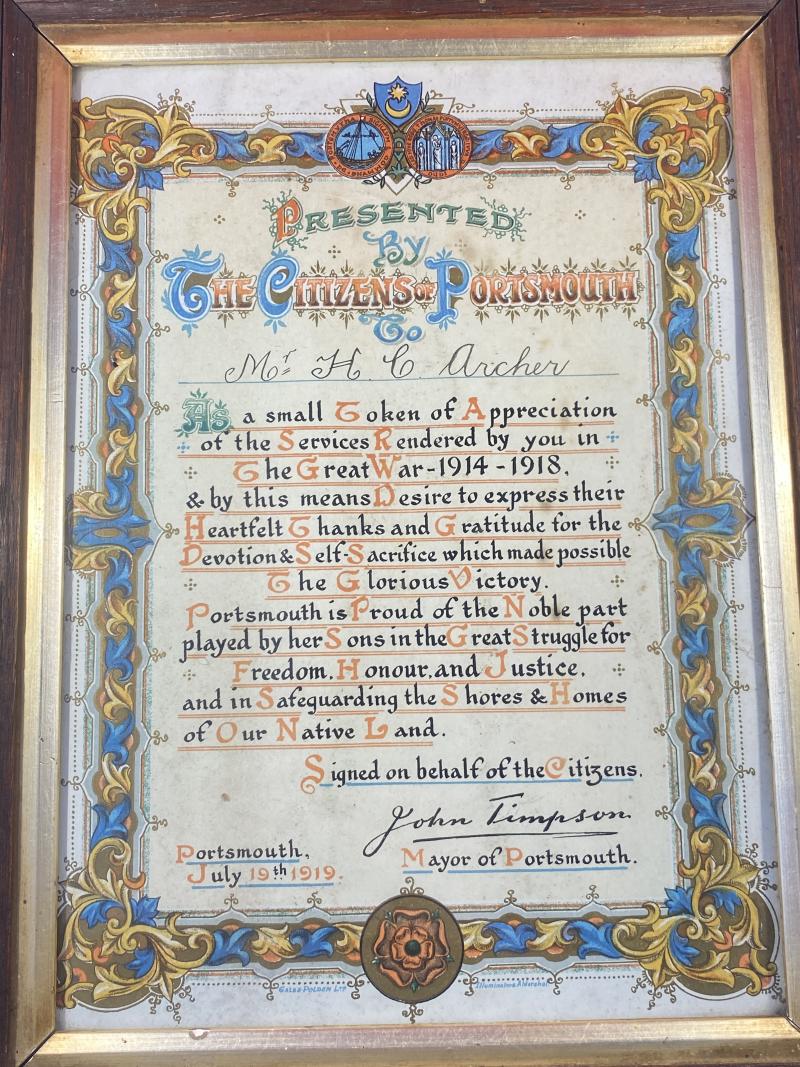 PRESENTED
By
THE CITIZENS OF PORTSMOUTH
To
Mr H. C. Archer
As a small Token of Appreciation
of the Services Rendered by you in
The Great War-1914-1918,
& by this means Desire to express their
Heartfelt Thanks and Gratitude for the
Devotion & Self-Sacrifice which made possible
The Glorious Victory.
Portsmouth is Proud of the Noble part
played by her Sons in the Great Struggle for
Freedom, Honour, and Justice,
and in Safeguarding the Shores & Homes
of Our Native Land.
Signed on behalf of the Citizens.
John Timpson.
Mayor of Portsmouth.
Portsmouth,
July 19th 1919.
GALE & POLDEN LTD